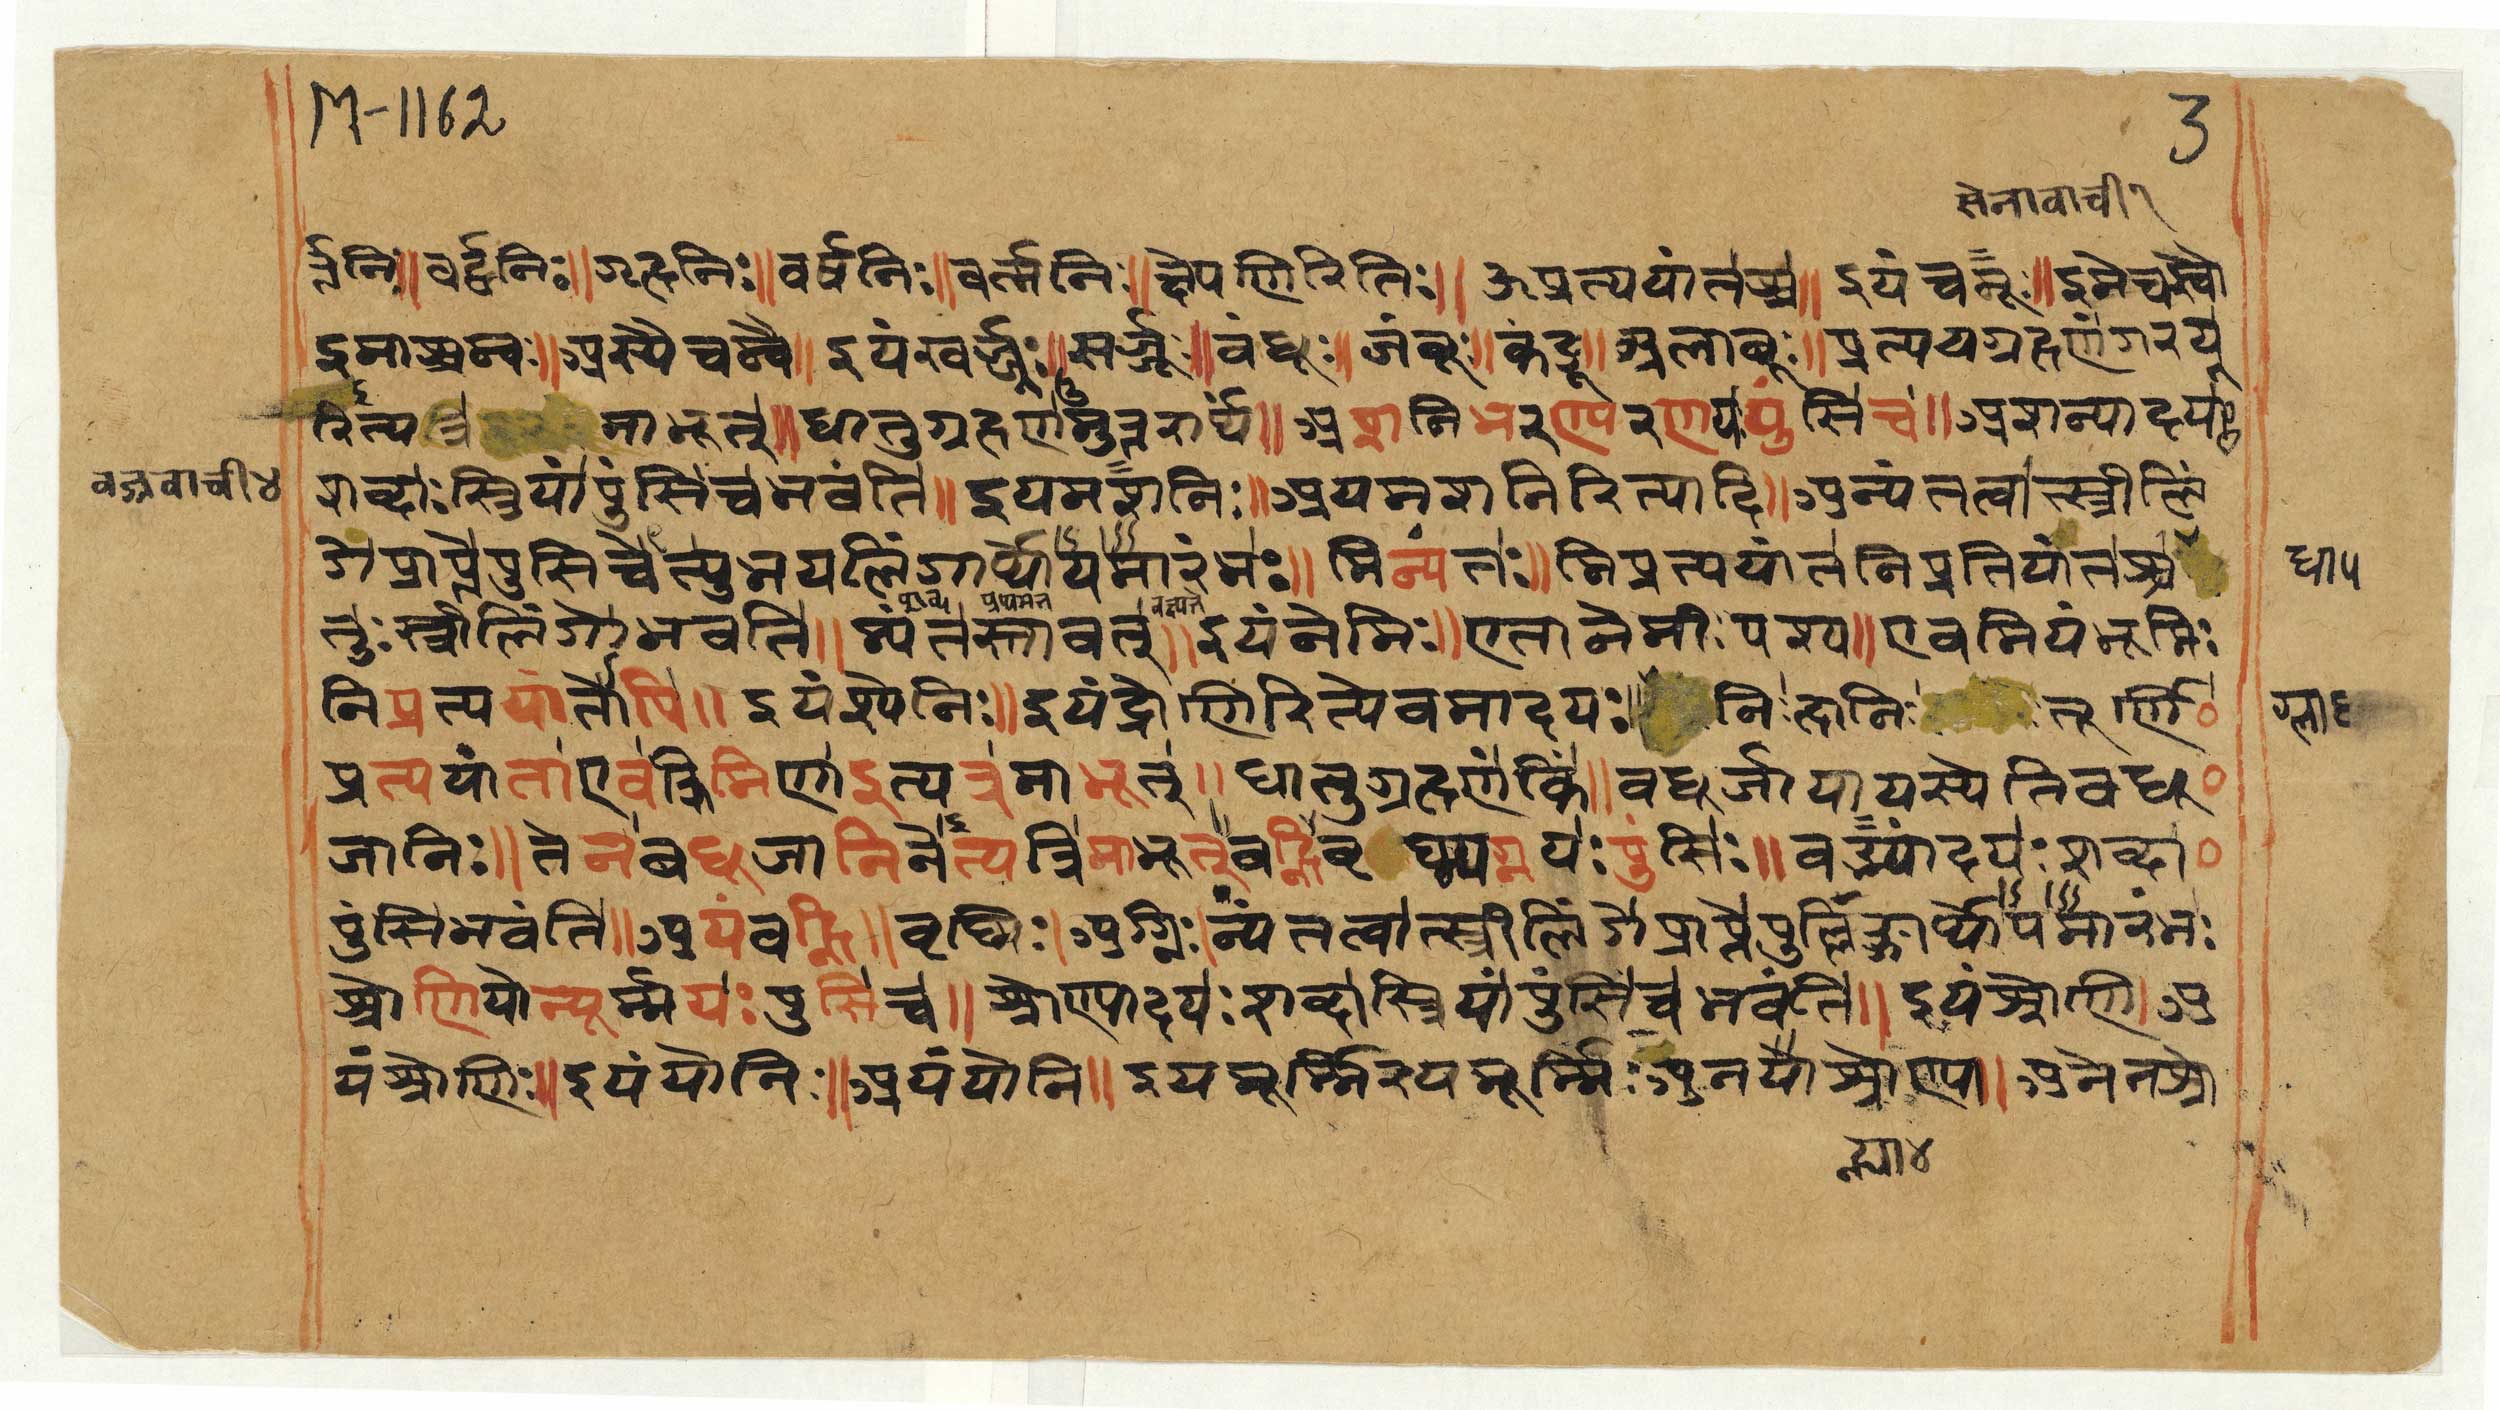 M-1162
3
सेनावाची१
र्त्तनिः॥वर्द्धनिः॥गृह्रनिः॥वर्षनिः॥वर्त्मनिः॥द्वेपणिरितिः॥ ऊप्रत्ययांतश्च॥ इयंचमूः॥इमेचम्वौ
इमाश्चम्वः॥अस्यैचम्वै॥ इयंखर्ज्जूः॥सर्ज्जूः॥वंधूः॥जंबूः॥कंद्रू॥अलाबूः॥प्रत्ययग्रहणंगरयू
रित्यत्र माभूत्॥धातुग्रहणमुत्तरार्थं॥ अशनिभरण्यरणयपुंसिच॥ अशन्यादयः
वज्रवाची४
शब्दाःस्त्रियांपुंसिचभवंति॥ इयमशनिः॥अयमशनिरित्यादि॥अन्यंतत्वात्स्त्रीलिं
गेप्राप्तेपुंसिचेत्युभयलिंगार्थोयमारंभः॥ मिन्यंतः॥मिप्रत्ययांतनिप्रतियांतश्च
धा५
तुःस्त्रीलिंगोभवति॥ म्यंतस्तावत्॥इयंनेमिः॥एतानेमीःपश्य॥एवमियंभूमिः
निप्रत्ययांतोपि॥ इयंश्येनिः॥इयंद्रोणिरित्येवमादयः॥ निःहानिः तूर्णि०
ग्ला६
प्रत्ययांताएवक्रिमिणोइत्यत्रमाभूत्॥ धातुग्रहणंकिं॥वधूर्जायायस्येतिवधू०
जानिः॥तेनबधूजानिनेत्यत्रिमाभूत्॥वह्निवृ घ्र्यग्नयःपुंसिः॥वह्न्यादयःशब्दा०
पुंसिभवंति॥अयंवह्नि॥वृष्णिः।अग्निः।न्यंतत्वात्स्त्रीलिंगेप्राप्तेपुल्लिङ्गार्थोयमारंभः
श्रोणियोन्यूर्म्मयःपुंसिच॥ श्रोण्यादयःशब्दास्त्रियांपुंसिचभवंति॥ इयंश्रोणि।अ
यंश्रोणिः॥इयंयोनिः॥अयंयोनि॥इयमूर्म्मिरयमूर्म्मिःअनयाश्रोण्या॥अनेनश्रो